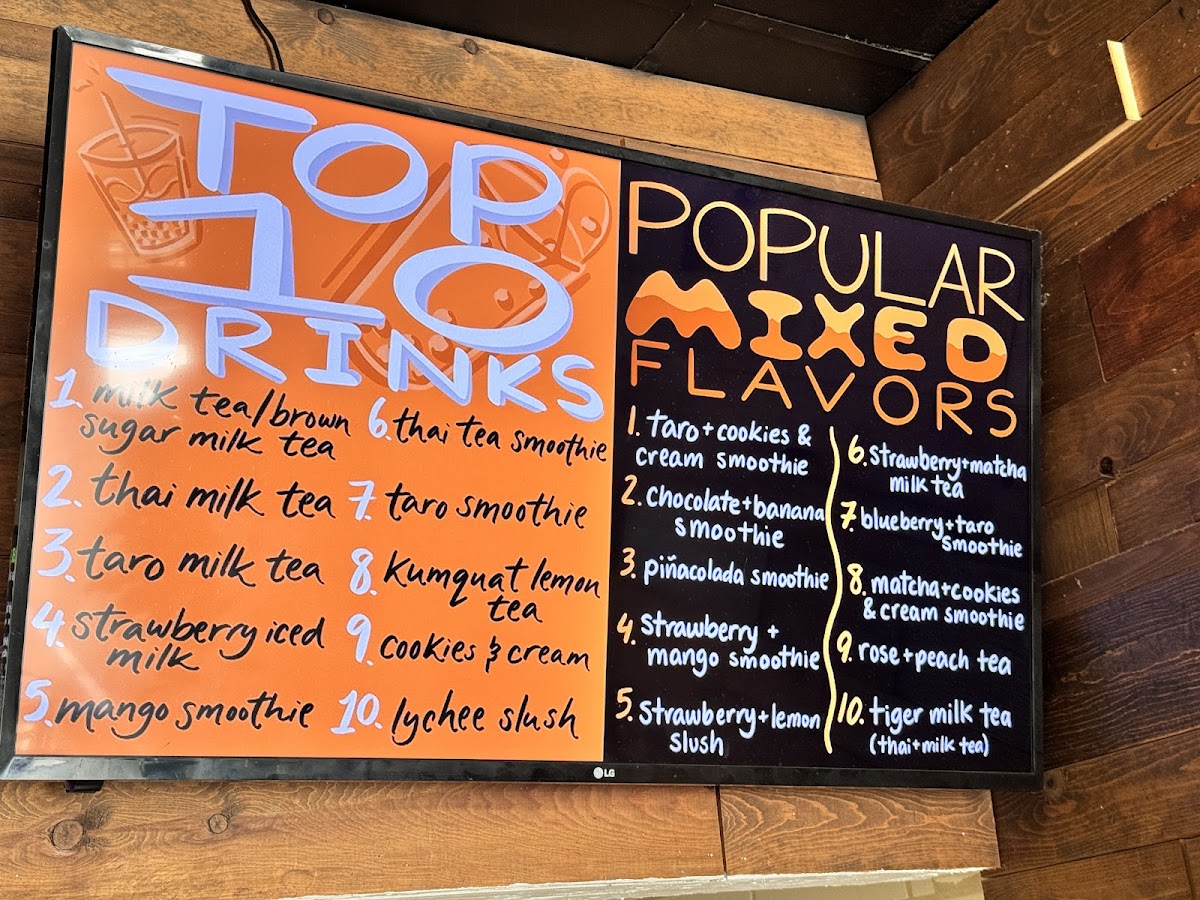 TOP
10
DRINKS
1. milk tea/brown
sugar milk tea
2. thai milk tea
3. taro milk tea
4. strawberry iced
milk
5. mango smoothie
6. thai tea smoothie
7. taro smoothie
8. Kumquat lemon
tea
9. cookies & cream
10. lychee slush
POPULAR
MIXED
FLAVORS
1. taro + cookies &
cream smoothie
2. chocolate + banana
smoothie
3. piñacolada smoothie
4. strawberry +
mango smoothie
5. strawberry + lemon
slush
6. strawberry + matcha
milk tea
7. blueberry + taro
smoothie
8. matcha + cookies
& cream smoothie
9. rose + peach tea
10. tiger milk tea
(thai + milk tea)
LG